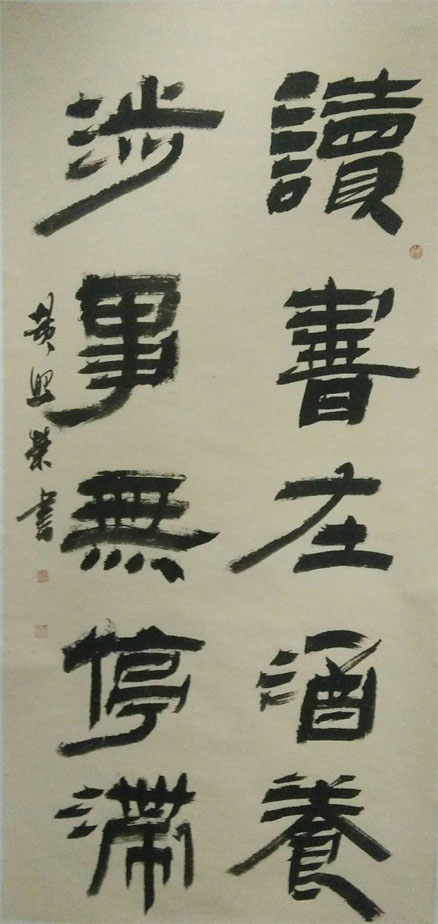 讀書在涵養
涉事無停滯
黄榮書